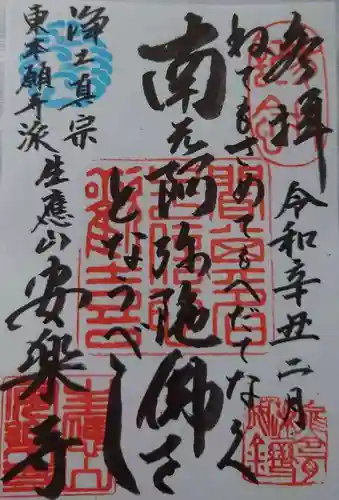 参拝
令和辛丑二月
ねてもさめてもへだてなく
南无阿弥陀佛を
となうべし
浄土真宗
東本願寺派
生應山
安樂寺